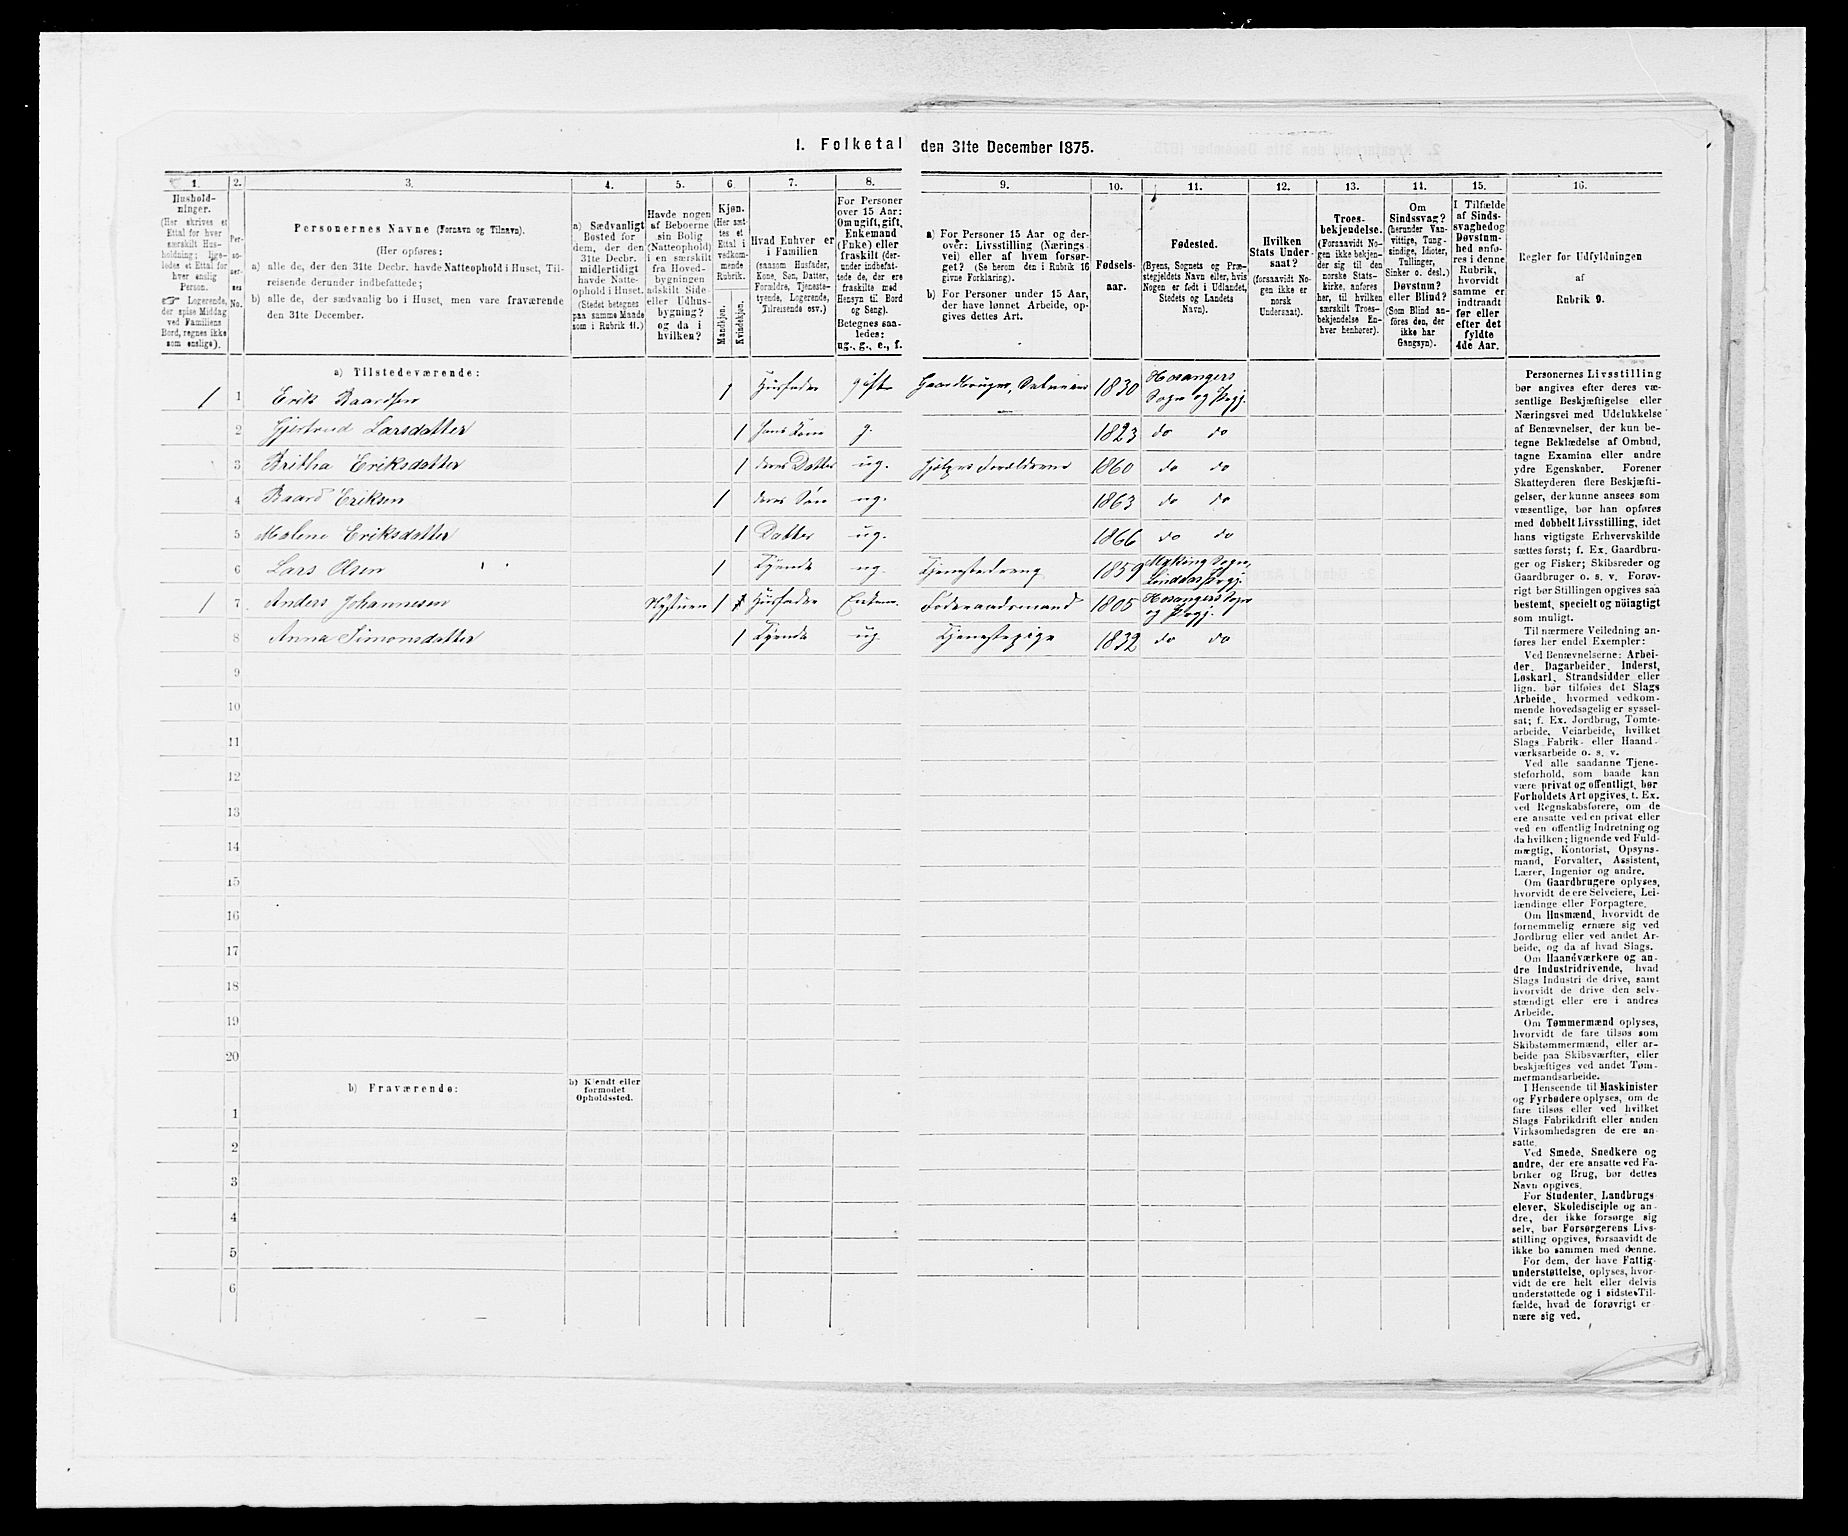 1. Folketal den 31te December 1875.
1. 2. 3. 4. 5. 6. 7. 8. 9. 10. 11. 12. 13. 14. 15. 16.
Hushold-
ninger.
(Her skrives et
Ettal for hver
særskilt Hus-
holdning; lige-
ledes et Ettal for
hver enslig
Person.
☞ Logerende,
der spise Middag
ved Familiens
Bord, regnes ikke
som enslige).
Per-
so-
ner-
nes
No.
Personernes Navne (Fornavn og Tilnavn).
(Her opføres:
a) alle de, der den 31te Decbr. havde Natteophold i Huset, Til-
reisende derunder indbefattede;
b) alle de, der sædvanlig bo i Huset, men vare fraværende
den 31te December.
a) Sædvanligt
Bosted for
dem, der den
31te Decbr.
midlertidigt
havde Natte-
ophold i Huset.
(Stedet betegnes
paa samme Maade
som i Rubrik 11.)
Havde nogen
af Beboerne
sin Bolig
(Natteophold)
i en særskilt
fra Hoved-
bygningen
adskilt Side-
eller Udhus-
bygning?
og da i
hvilken?
Kjøn.
(Her sæt-
tes et
Ettal i
vedkom-
mende
Rubrik.
Mandkjøn.
Kvindekjøn.
Hvad Enhver er
i Familien
(saasom Husfader,
Kone, Søn, Datter,
Forældre, Tjeneste-
tyende, Logerende,
Tilreisende osv.)
For Personer
over 15 Aar:
Om ugift, gift,
Enkemand
(Enke) eller
fraskilt (der-
under indbefat-
tede de, der ere
fraskilte med
Hensyn til Bord
og Seng).
Betegnes saa-
ledes:
ug., g., e., f.
a) For Personer 15 Aar og der-
over: Livsstilling (Nærings
vei) eller af hvem forsør-
get? (Se herom den i Rubrik 16
givne Forklaring).
b) For Personer under 15 Aar,
der have lønnet Arbeide, op-
gives dettes Art.
Fødsels-
aar.
Fødested.
(Byens, Sognets og Præ-
stegjeldets Navn eller, hvis
Nogen er født i Udlandet,
Stedets og Landets
Navn).
Hvilken
Stats Under
saat?
(forsaavidt No-
gen ikke er
norsk
Undersaat).
Troes-
bekjendelse.
(Forsaavidt No-
gen ikke bekjen-
der sig til den
norske Stats-
kirke, anføres
her, til hvilken
særskilt Troes-
bekjendelse En-
hver henhører).
Om
Sindssvag?
(herunder Van-
vittige, Tung-
sindige, Idioter,
Tullinger,
Sinker o. desl.)
Døvstum?
eller Blind?
(Som Blind an-
føres den, der
ikke har
Gangsyn).
I Tilfælde
af Sinds-
svaghed og
Døvstum-
hed anfø-
res i denne
Rubrik,
hvorvidt
samme er
indtraadt
før eller
efter det
fyldte
4de Aar.
Regler for Udfyldningen
af
Rubrik 9.
a) Tilstedeværende:
1 1 Erik Baardsen 1 Husfader gift Gaardbruger, Selveier 1830 Hosangers
Sogn og Prgj.
2 Gjertrud Larsdatter 1 hans Kone g. 1823 do do
3 Britha Eriksdatter 1 deres Datter ug. hjelper Forældrene 1860 do do
4 Baard Eriksen 1 deres Søn ug. 1863 do do
5 Malene Eriksdatter 1 Datter ug. 1866 do do
6 Lars Olsen 1 Tyende ug. Tjenestedreng 1859 Myking Sogn,
Lindaas Prgj.
1 7 Anders Johannesen Nystuen 1 Husfader Enkem. Føderaadsmand 1805 Hosangers Sogn
og Prgj.
8 Anna Simonsdatter 1 Tyende ug. Tjenestepige 1832 do do
9
10
11
12
13
14
15
16
17
18
19
20
b) Fraværende:
b) Kjendt eller
formodet
Opholdssted.
1
2
3
4
5
6
Personernes Livsstilling
bør angives efter deres væ-
sentlige Beskjæftigelse eller
Næringsvei med Udelukkelse
af Benævnelser, der kun be-
tegne Beklædelse af Ombud,
tagne Examina eller andre
ydre Egenskaber. Forener
Skatteyderen flere Beskjæfti-
gelser, der kunne ansees som
væsentlige, bør han opføres
med dobbelt Livsstilling, idet
hans vigtigste Erhvervskilde
sættes først; f. Ex. Gaardbru-
ger og Fisker; Skibsreder og
Gaardbruger o. s. v. Forøv-
rigt bør Stillingen opgives saa
bestemt, specielt og nøiagtigt
som muligt.
Til nærmere Veiledning an-
føres her endel Exempler:
Ved Benævnelserne: Arbei-
der, Dagarbeider, Inderst,
Løskarl, Strandsidder eller
lign. bør tilføies det Slags
Arbeide, hvormed vedkom-
mende hovedsagelig er syssel-
sat; f. Ex. Jordbrug, Tomte-
arbeide, Veiarbeide, hvilket
Slags Fabrik- eller Haand-
værksarbeide o. s. v.
Ved alle saadanne Tjene-
steforhold, som baade kan
være privat og offentligt, bør
Forholdets Art opgives, t. Ex.
ved Regnskabsførere, om de
ere ansatte ved en privat eller
ved en offentlig Indretning og
da hvilken; lignende ved Fuld-
mægtig, Kontorist, Opsyns-
mand, Forvalter, Assistent,
Lærer, Ingeniør og andre.
Om Gaardbrugere oplyses,
hvorvidt de ere Selveiere, Lei-
lændinge eller Forpagtere.
Om Husmænd, hvorvidt de
fornemmelig ernære sig ved
Jordbrug eller ved andet Ar-
beide, og da af hvad Slags.
Om Haandværkere og an-
dre Industridrivende, hvad
Slags Industri de drive, samt
hvorvidt de drive den selv-
stændigt eller ere i andres
Arbeide.
Om Tømmermænd oplyses,
hvorvidt de fare tilsøs som
Skibstømmermænd, eller ar-
beide paa Skibsværfter, eller
beskjæftiges ved andet Tøm-
mermandsarbeide.
I Henseende til Maskinister
og Fyrbødere oplyses, om de
fare tilsøs eller ved hvilket
Slags Fabrikdrift eller anden
Virksomhedsgren de ere an-
satte.
Ved Smede, Snedkere og
andre, der ere ansatte ved Fa-
briker og Brug, bør dettes
Navn opgives.
For Studenter, Landbrugs
elever, Skoledisciple og an-
dre, der ikke forsørge sig
selv, bør Forsørgerens Livs-
stilling opgives, forsaavidt de
ikke bo sammen med denne.
For dem, der have Fattig-
understøttelse, oplyses, hvor-
vidt de ere helt eller delvis
understøttede og i sidste Til-
fælde, hvad de forøvrigt er
nære sig ved.